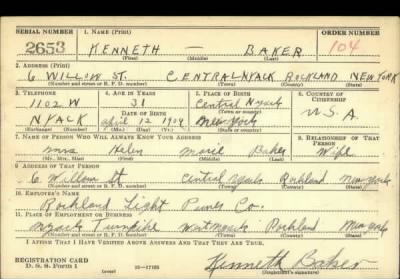 SERIAL NUMBER 1. NAME (Print) ORDER NUMBER
2653 KENNETH — BAKER 104
(First) (Middle) (Last)
2. ADDRESS (Print)
6 WILLOW ST. CENTRAL NYACK ROCKLAND NEW YORK
(Number and street or R. F. D. number) (Town) (County) (State)
3. TELEPHONE 4. AGE IN YEARS 5. PLACE OF BIRTH 6. COUNTRY OF CITIZENSHIP
1102 W 31 Central Nyack
DATE OF BIRTH (Town or county)
NYACK April 12 1909 New York U.S.A
(Exchange) (Number) (Mo.) (Day) (Yr.) (State or country)
7. NAME OF PERSON WHO WILL ALWAYS KNOW YOUR ADDRESS 8. RELATIONSHIP OF THAT PERSON
Mrs Helen Marie Baker Wife
(Mr., Mrs., Miss) (First) (Middle) (Last)
9. ADDRESS OF THAT PERSON
6 Willow St Central Nyack Rockland New York
(Number and street or R. F. D. number) (Town) (County) (State)
10. EMPLOYER'S NAME
Rockland Light Power Co.
11. PLACE OF EMPLOYMENT OR BUSINESS
Nyack Turnpike West Nyack Rockland New York
(Number and street or R. F. D. number) (Town) (County) (State)
I AFFIRM THAT I HAVE VERIFIED ABOVE ANSWERS AND THAT THEY ARE TRUE.
REGISTRATION CARD
D. S. S. Form 1 16—17105 Kenneth Baker